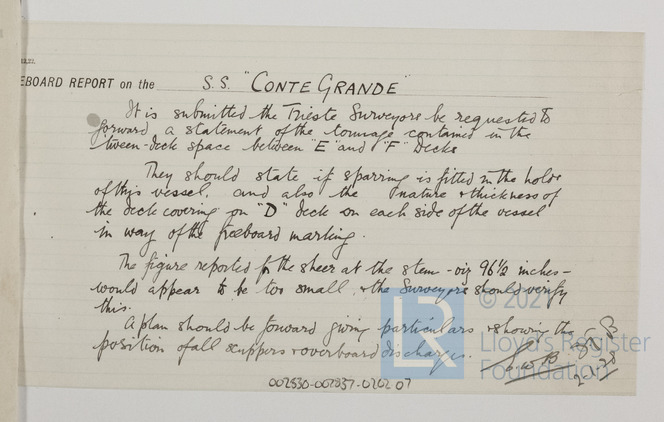 EBOARD REPORT on the S.S. "CONTE GRANDE"
It is submitted the Trieste Surveyors be requested to
forward a statement of the tonnage contained in the
tween-deck space between "E" and "F" Decks
They should state if sparring is fitted in the holds
of this vessel, and also the nature & thickness of
the deck covering on "D" deck on each side of the vessel
in way of the freeboard marking.
The figure reported for the sheer at the stem - viz 96½ inches -
would appear to be too small & the Surveyors should verify
this.
A plan should be forward giving particulars & showing the
position of all scuppers & overboard discharges.
2-1-28
002830-002837-0202 07
LR
© 202
Lloyd's Register
Foundation